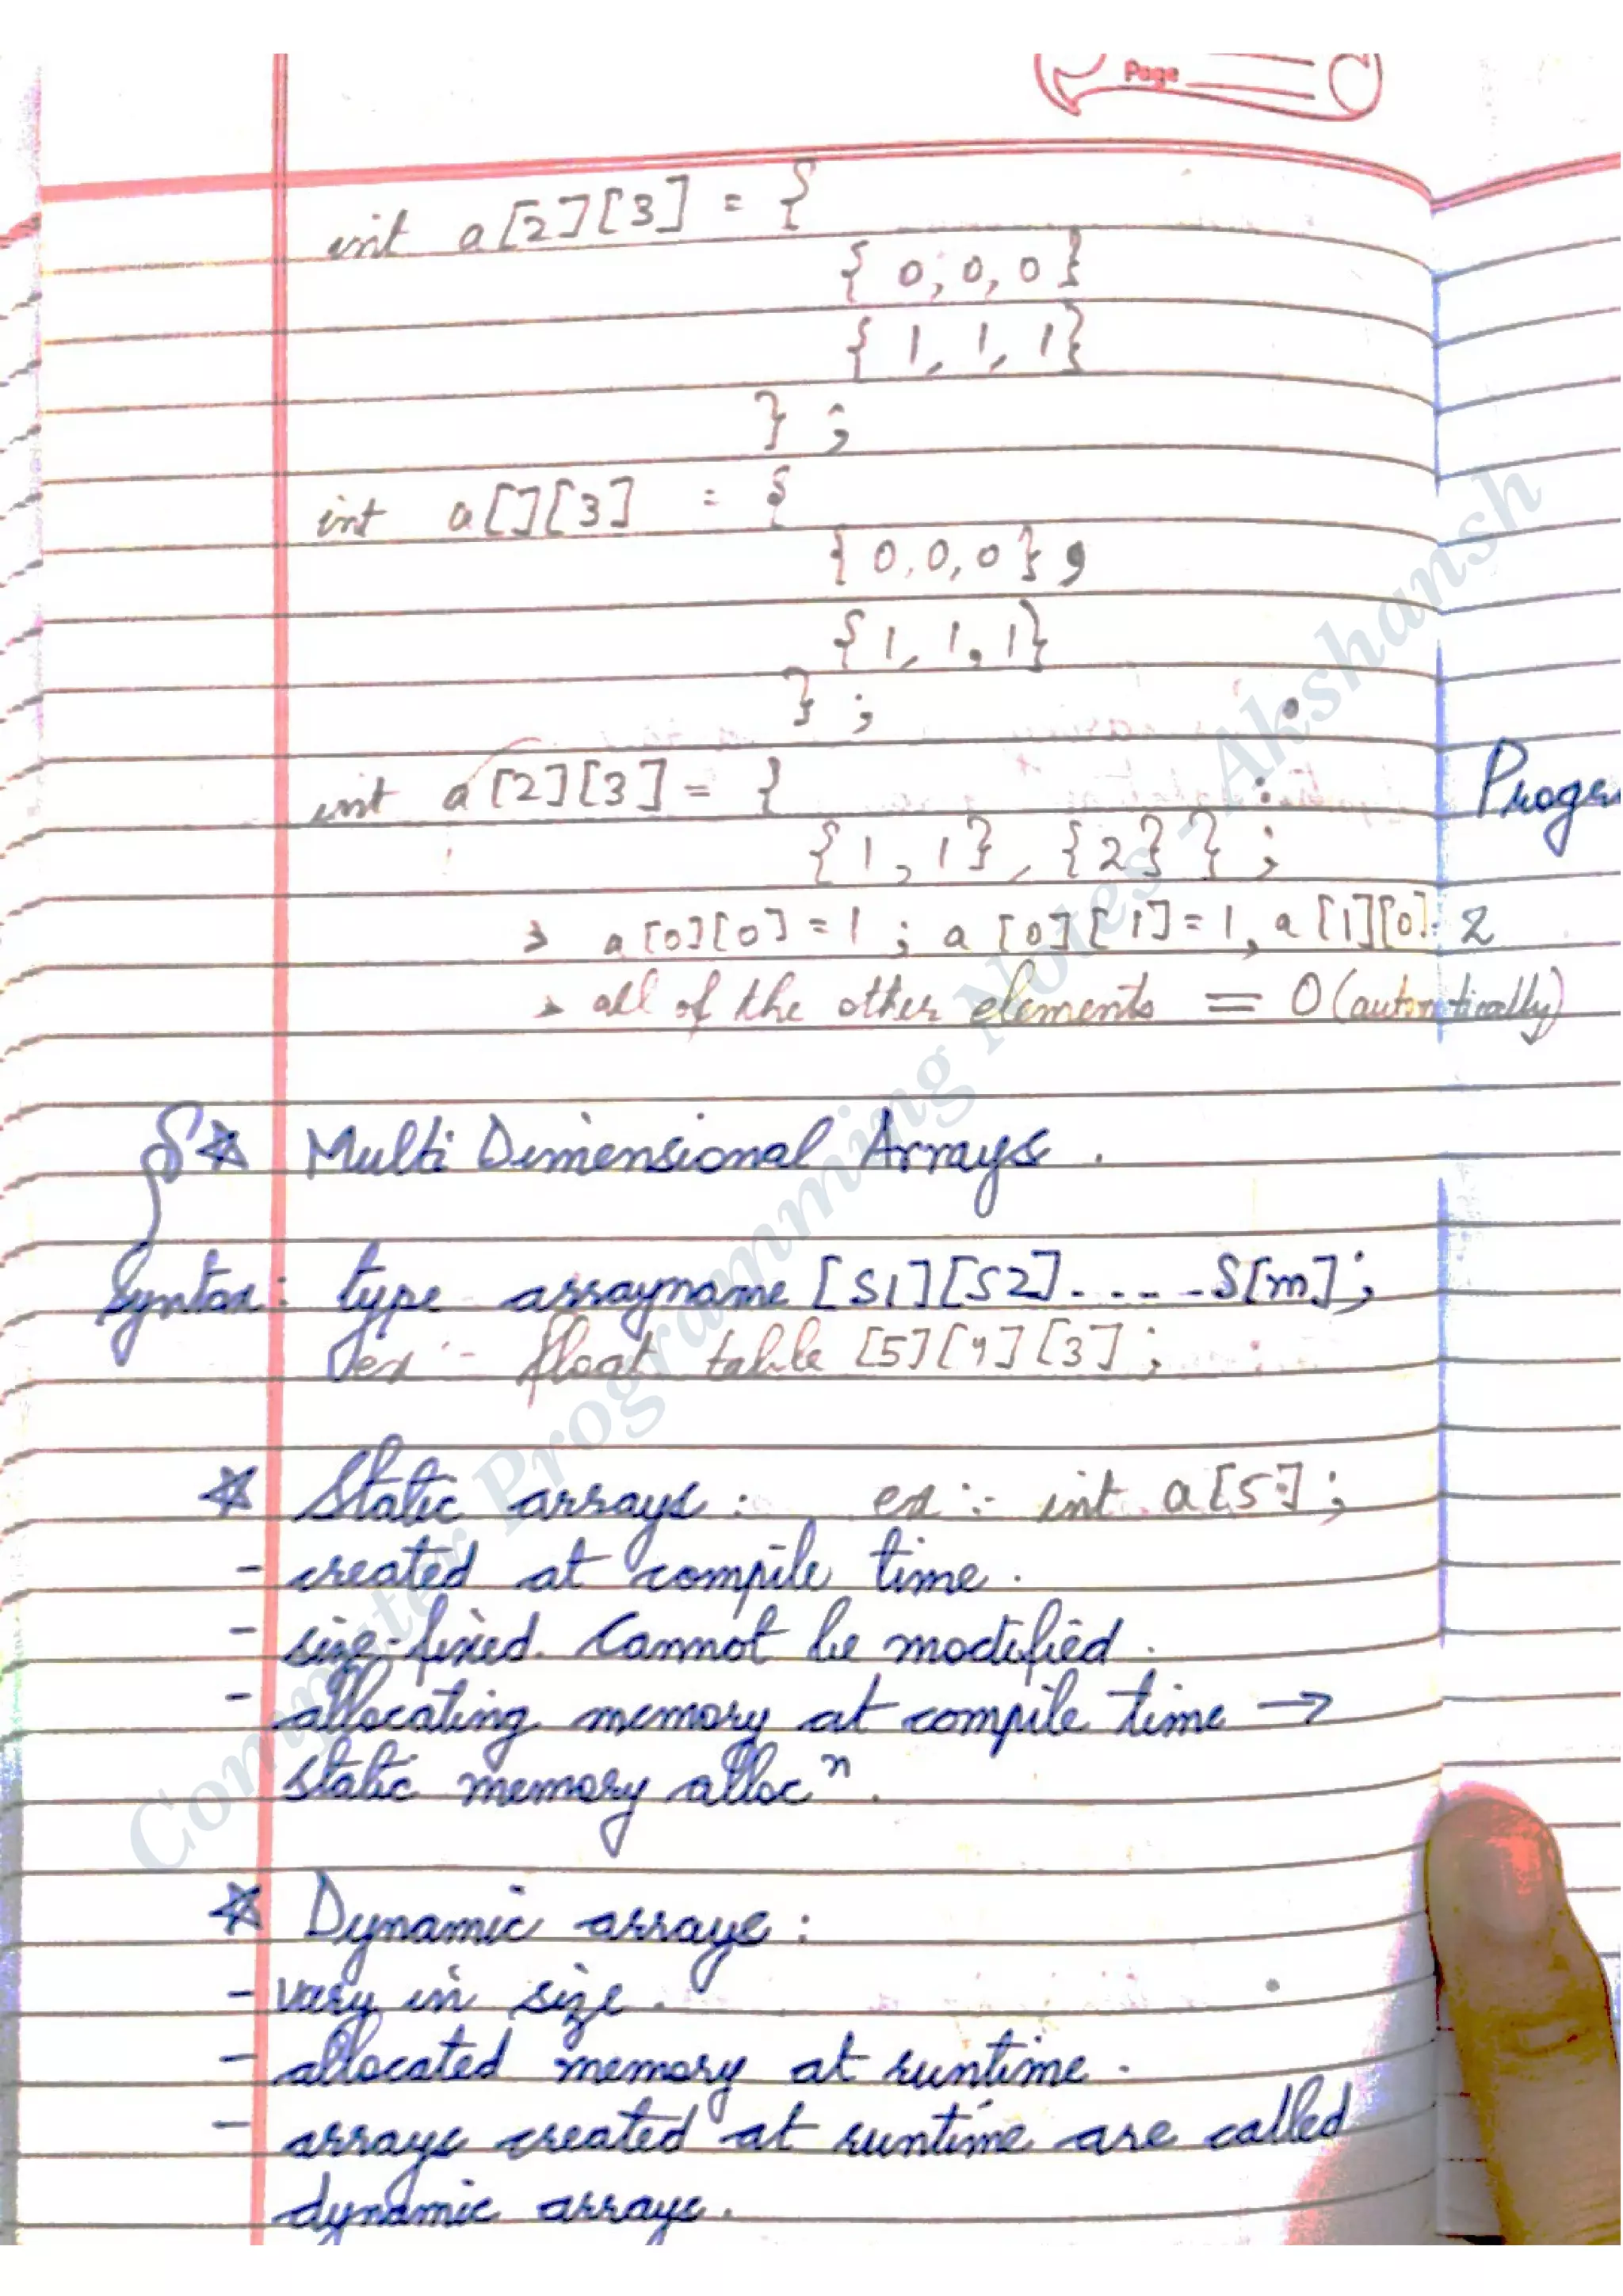 Page
int a[2][3] = {
{ 0, 0, 0}
{ 1, 1, 1}
} ;
int a[][3] = {
{ 0, 0, 0 } ,
{ 1, 1, 1}
} ;
int a [2][3] = {
{ 1, 1}, {2} } ;
a[0][0] = 1 ; a [0][1] = 1, a [1][0] = 2
all of the other elements = 0 (automatically)
Multi Dimensional Arrays .
Syntax : type arrayname [S1][S2].....S[m];
ex :- float table [5][4][3] ;
Static arrays : ex :- int a[5] ;
- created at compile time .
- size-fixed. Cannot be modified .
- allocating memory at compile time →
static memory allocⁿ .
Dynamic arrays :
- vary in size .
- allocated memory at runtime .
- arrays created at runtime are called
dynamic arrays .
Computer Programming Notes - Akshansh